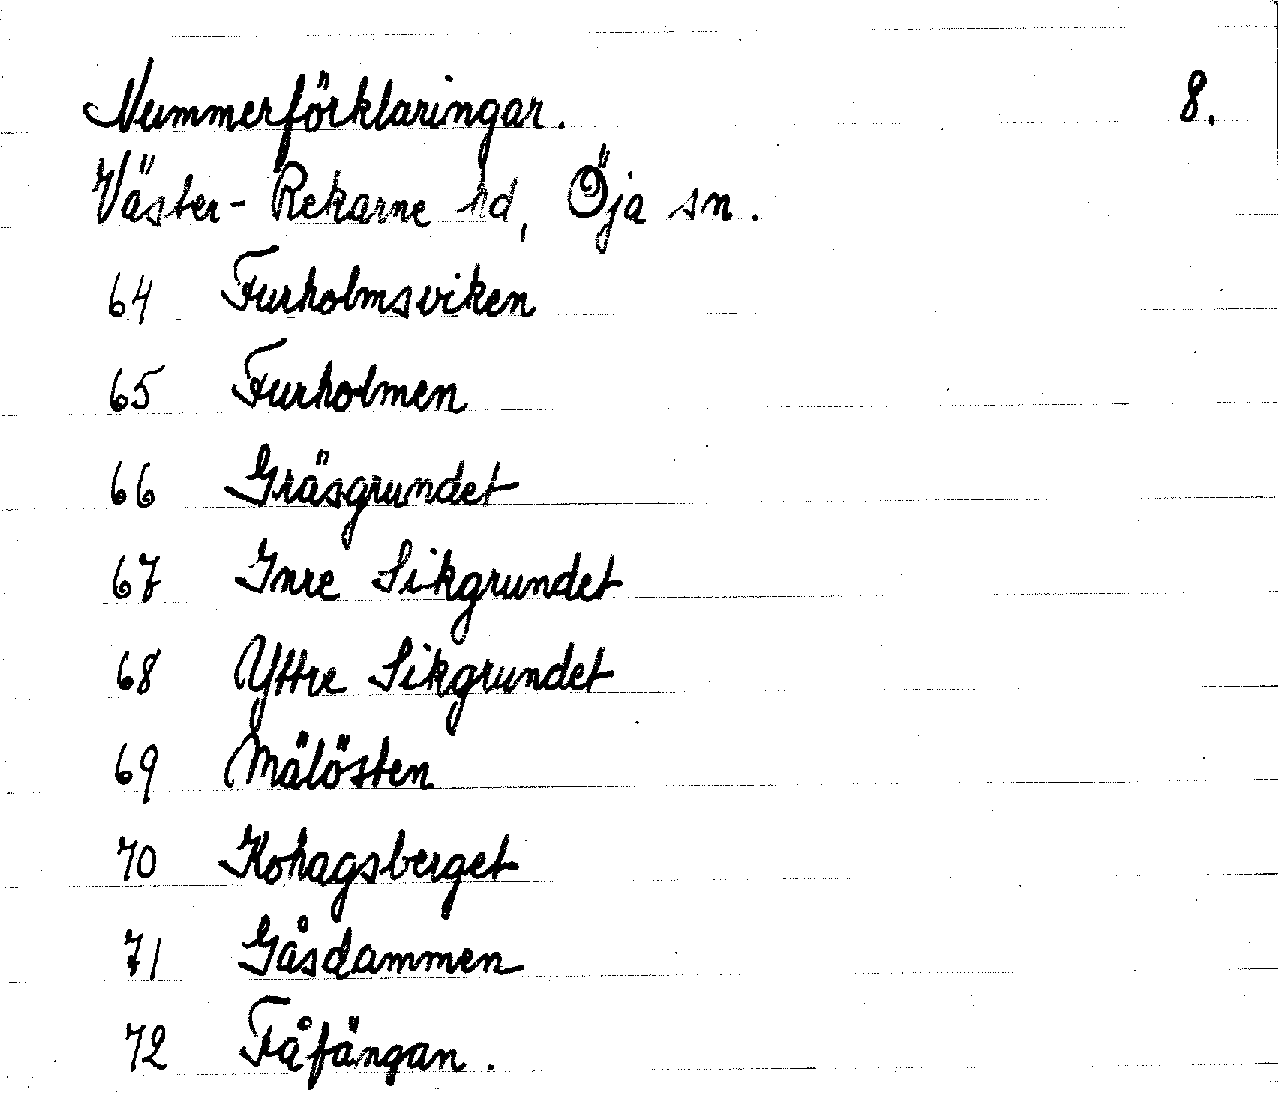 Nummerförklaringar. 8.
Väster-Rekarne hd, Öja sn.
64 Furholmsviken
65 Furholmen
66 Gräsgrundet
67 Inre Sikgrundet
68 Yttre Sikgrundet
69 Mälösten
70 Kohagsberget
71 Gåsdammen
72 Fåfängan.